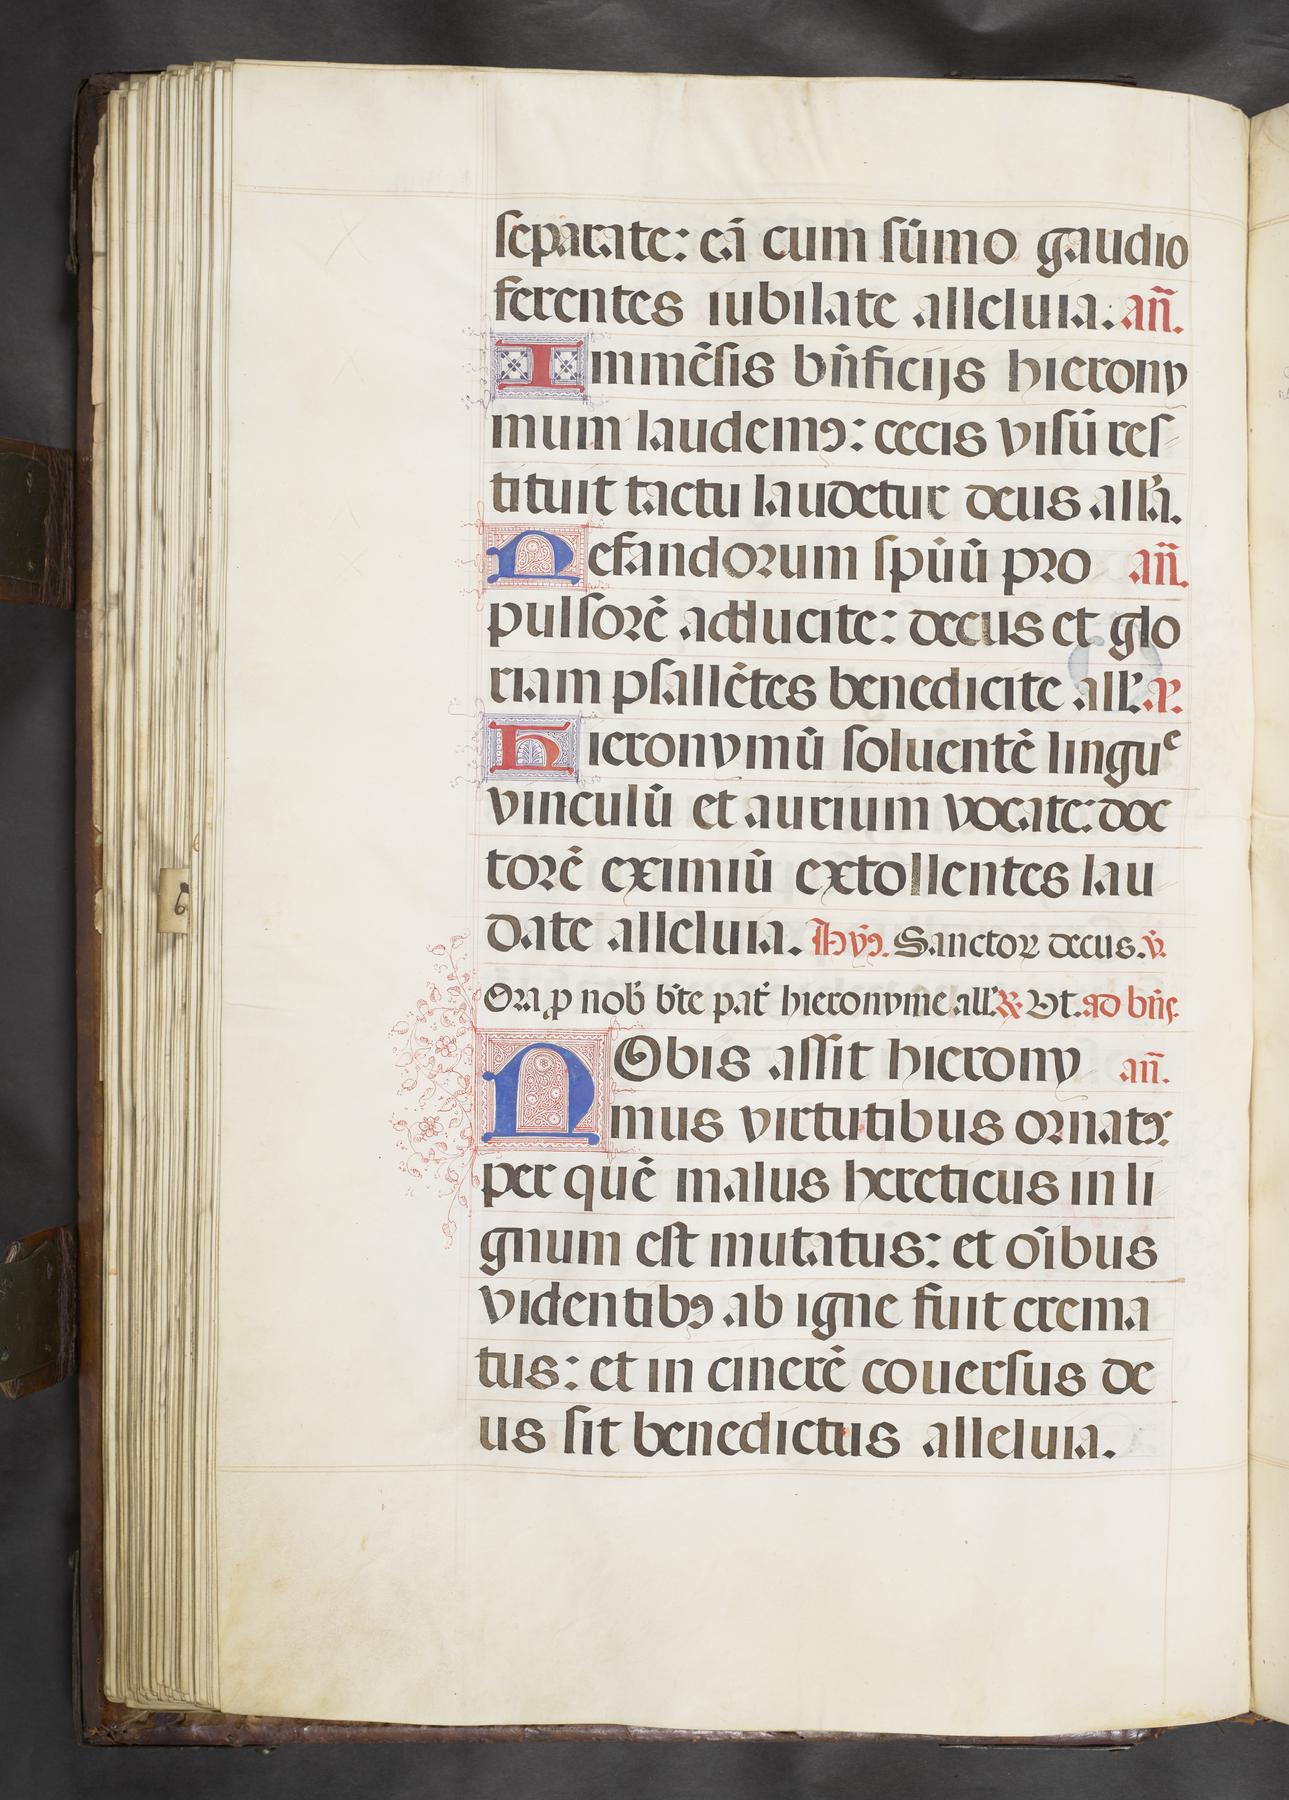 separate: eā cum sūmo gaudio
ferentes iubilate alleluia. añ.
Immēsis bn̄ficijs hierony
mum laudemꝰ: cecis visū res
tituit tactu laudetur deus all'a.
Nefandorum spūū pro añ.
pulsorē adducite: decus et glo
riam psallētes benedicite all'. a.
hieronymū soluentē lingue
vinculū et aurium vocate: doc
torē eximiū extollentes lau
date alleluia. Hyꝰ. Sanctoꝝ decus. v̄.
Ora ꝓ nob̄ b̄te pat̄ hieronyme all'. ℟. Vt. ad bn̄s.
NObis assit hierony añ.
mus virtutibus ornatꝰ:
per quē malus hereticus in li
gnum est mutatus: et oībus
videntibꝰ ab igne fuit crema
tus: et in cinerē couersus de
us sit benedictus alleluia.
6